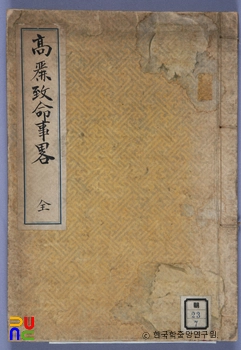 高麗致命事畧
全
23
ⓒ 한국학중앙연구원